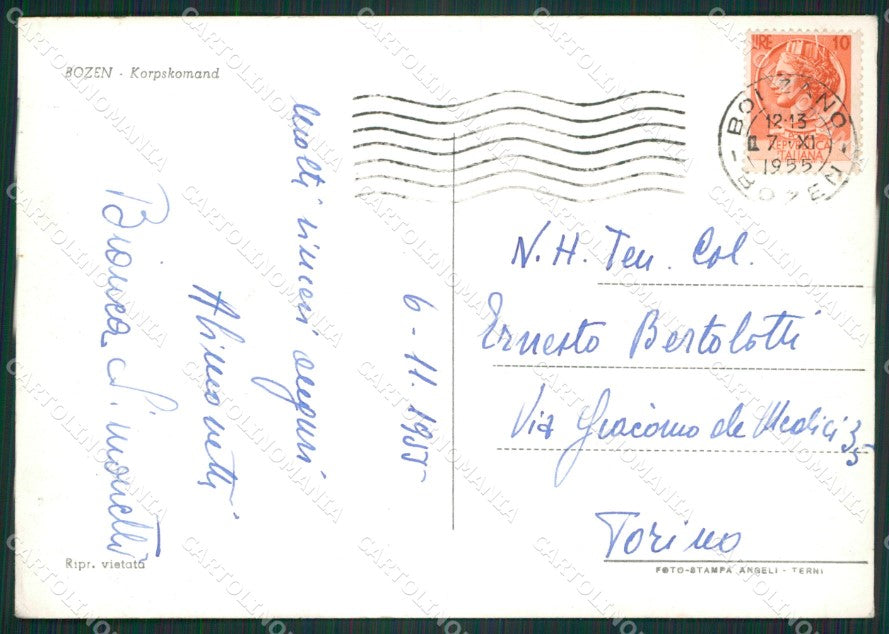 BOZEN - Korpskomand
molti sinceri auguri
6-11. 1955
Bianca Simonetti
LIRE 10
REPVBBLICA
ITALIANA
BOLZANO
12-13
7. XI
1955
BOZEN
N.H. Ten. Col.
Ernesto Bertolotti
Via Giacomo de Medici 35
Torino
Ripr. vietata
FOTO-STAMPA ANGELI - TERNI
CARTOLINOMANIA